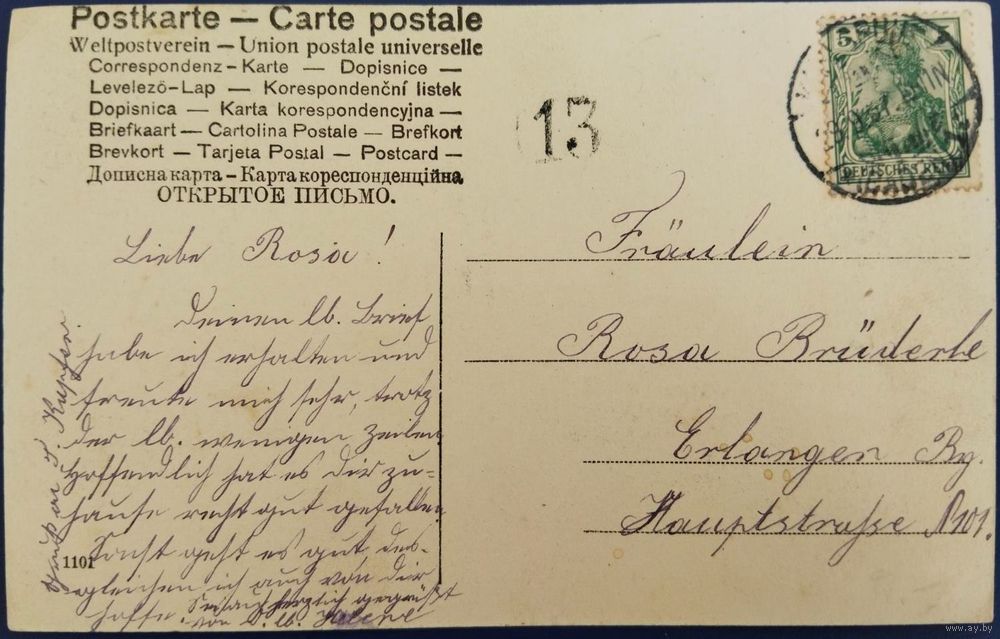 Postkarte — Carte postale
Weltpostverein — Union postale universelle
Correspondenz-Karte — Dopisnice —
Levelező-Lap — Korespondenční listek
Dopisnica — Karta korespondencyjna —
Briefkaart — Cartolina Postale — Brefkort
Brevkort — Tarjeta Postal — Postcard —
Дописна карта — Карта кореспонденційна
ОТКРЫТОЕ ПИСЬМО.
13
5
DEUTSCHES REICH
Liebe Rosa!
Deinen lb. Brief
habe ich erhalten und
freute mich sehr, trotz
der lb. wenigen Zeilen
Hoffendlich hat es dir zu-
hause recht gut gefallen
Sonst geht es gut, des-
gleichen ich auch von dir
hoffe. Sei auch herzlich gegrüßt
von d. lb.
1101
Fräulein
Rosa Brüderle
Erlangen By.
Hauptstraße N 101.
www.ay.by